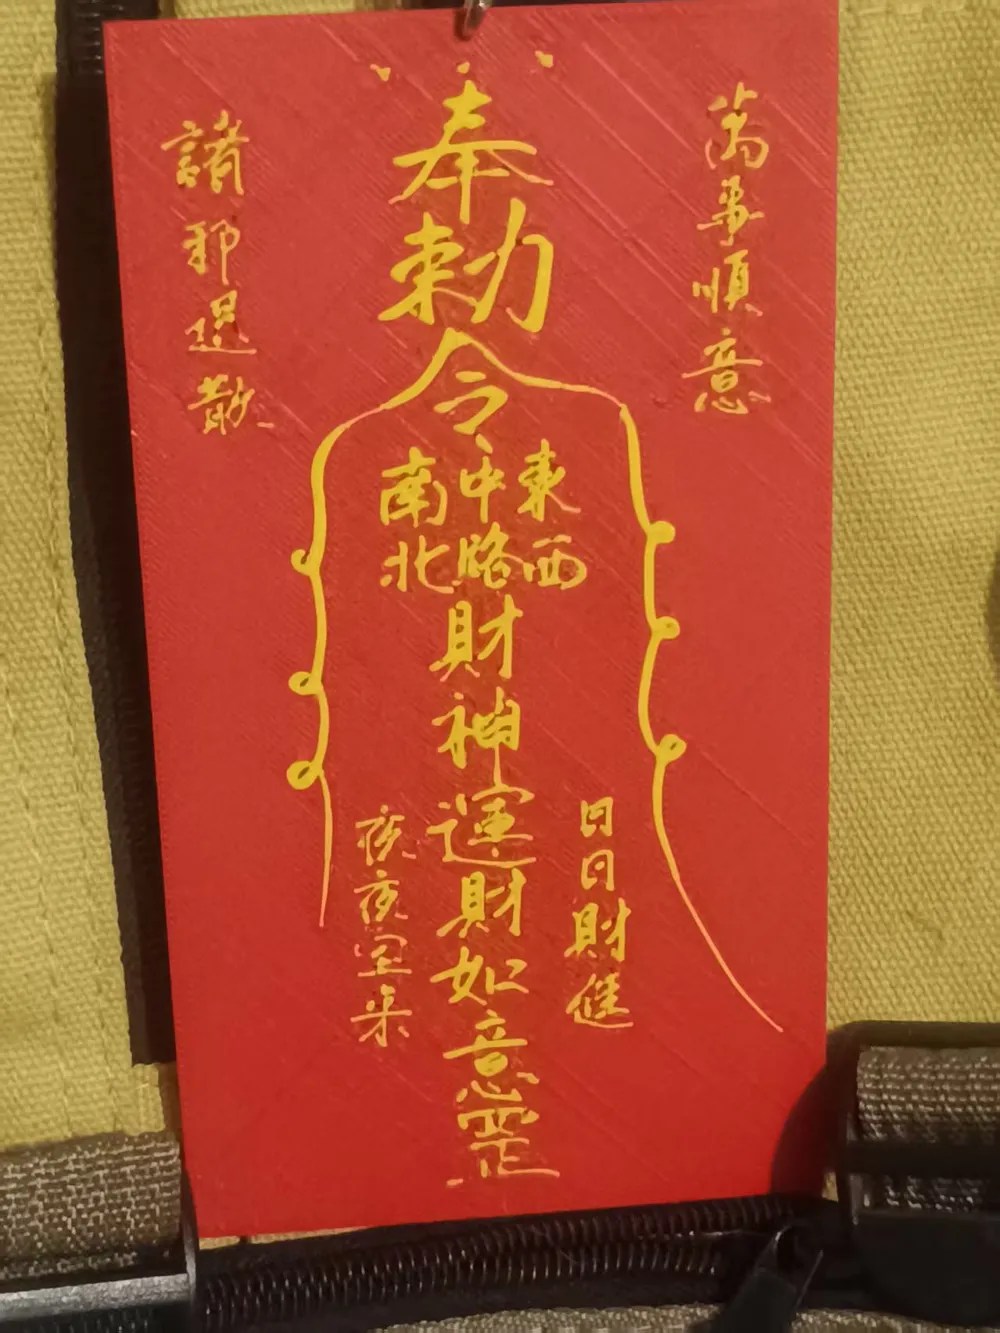 萬事順意
奉勅令
東西
中路
南北
財神運財如意罡
日日財進
夜夜宝来
諸邪退散